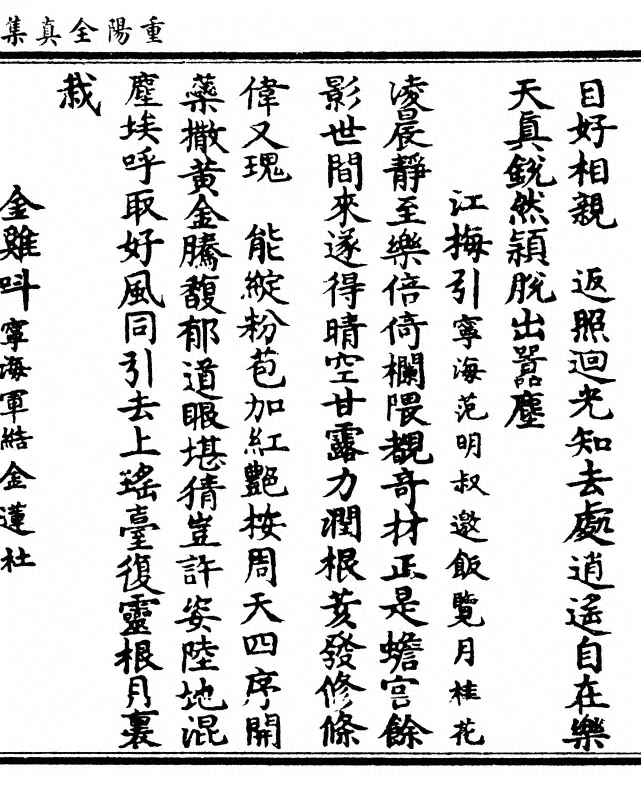 重陽全真集
目好相親　返照迴光知去處逍遙自在樂
天真銳然穎脫出囂塵
江梅引寧海范明叔邀飯覽月桂花
凌晨靜至樂倍倚欄隈覩奇材正是蟾宮餘
影世間來遂得晴空甘露力潤根荄發修條
偉又瑰　能綻粉苞加紅艷按周天四序開
蘂撒黃金騰馥郁道眼堪猜豈許姿陸地混
塵埃呼取好風同引去上瑤臺復靈根月裏
栽
金雞呌寧海軍結金蓮社